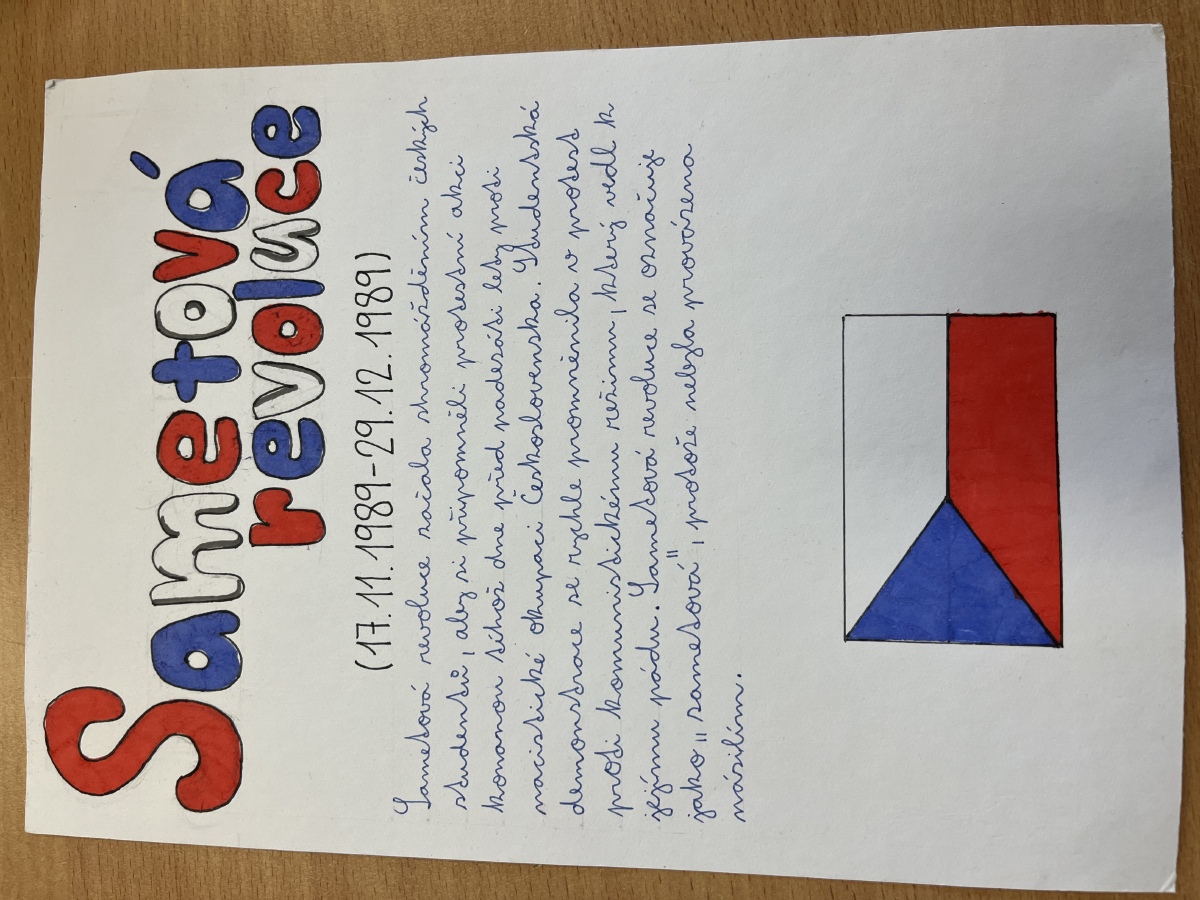 Sametová
revoluce
(17.11.1989-29.12.1989)
Sametová revoluce začala shromážděním českých
studentů, aby si připomněli protestní akci
konanou téhož dne před padesáti lety proti
nacistické okupaci Československa. Studentská
demonstrace se rychle proměnila v protest
proti komunistickému režimu, který vedl k
jejímu pádu. Sametová revoluce se označuje
jako „sametová", protože nebyla provázena
násilím.